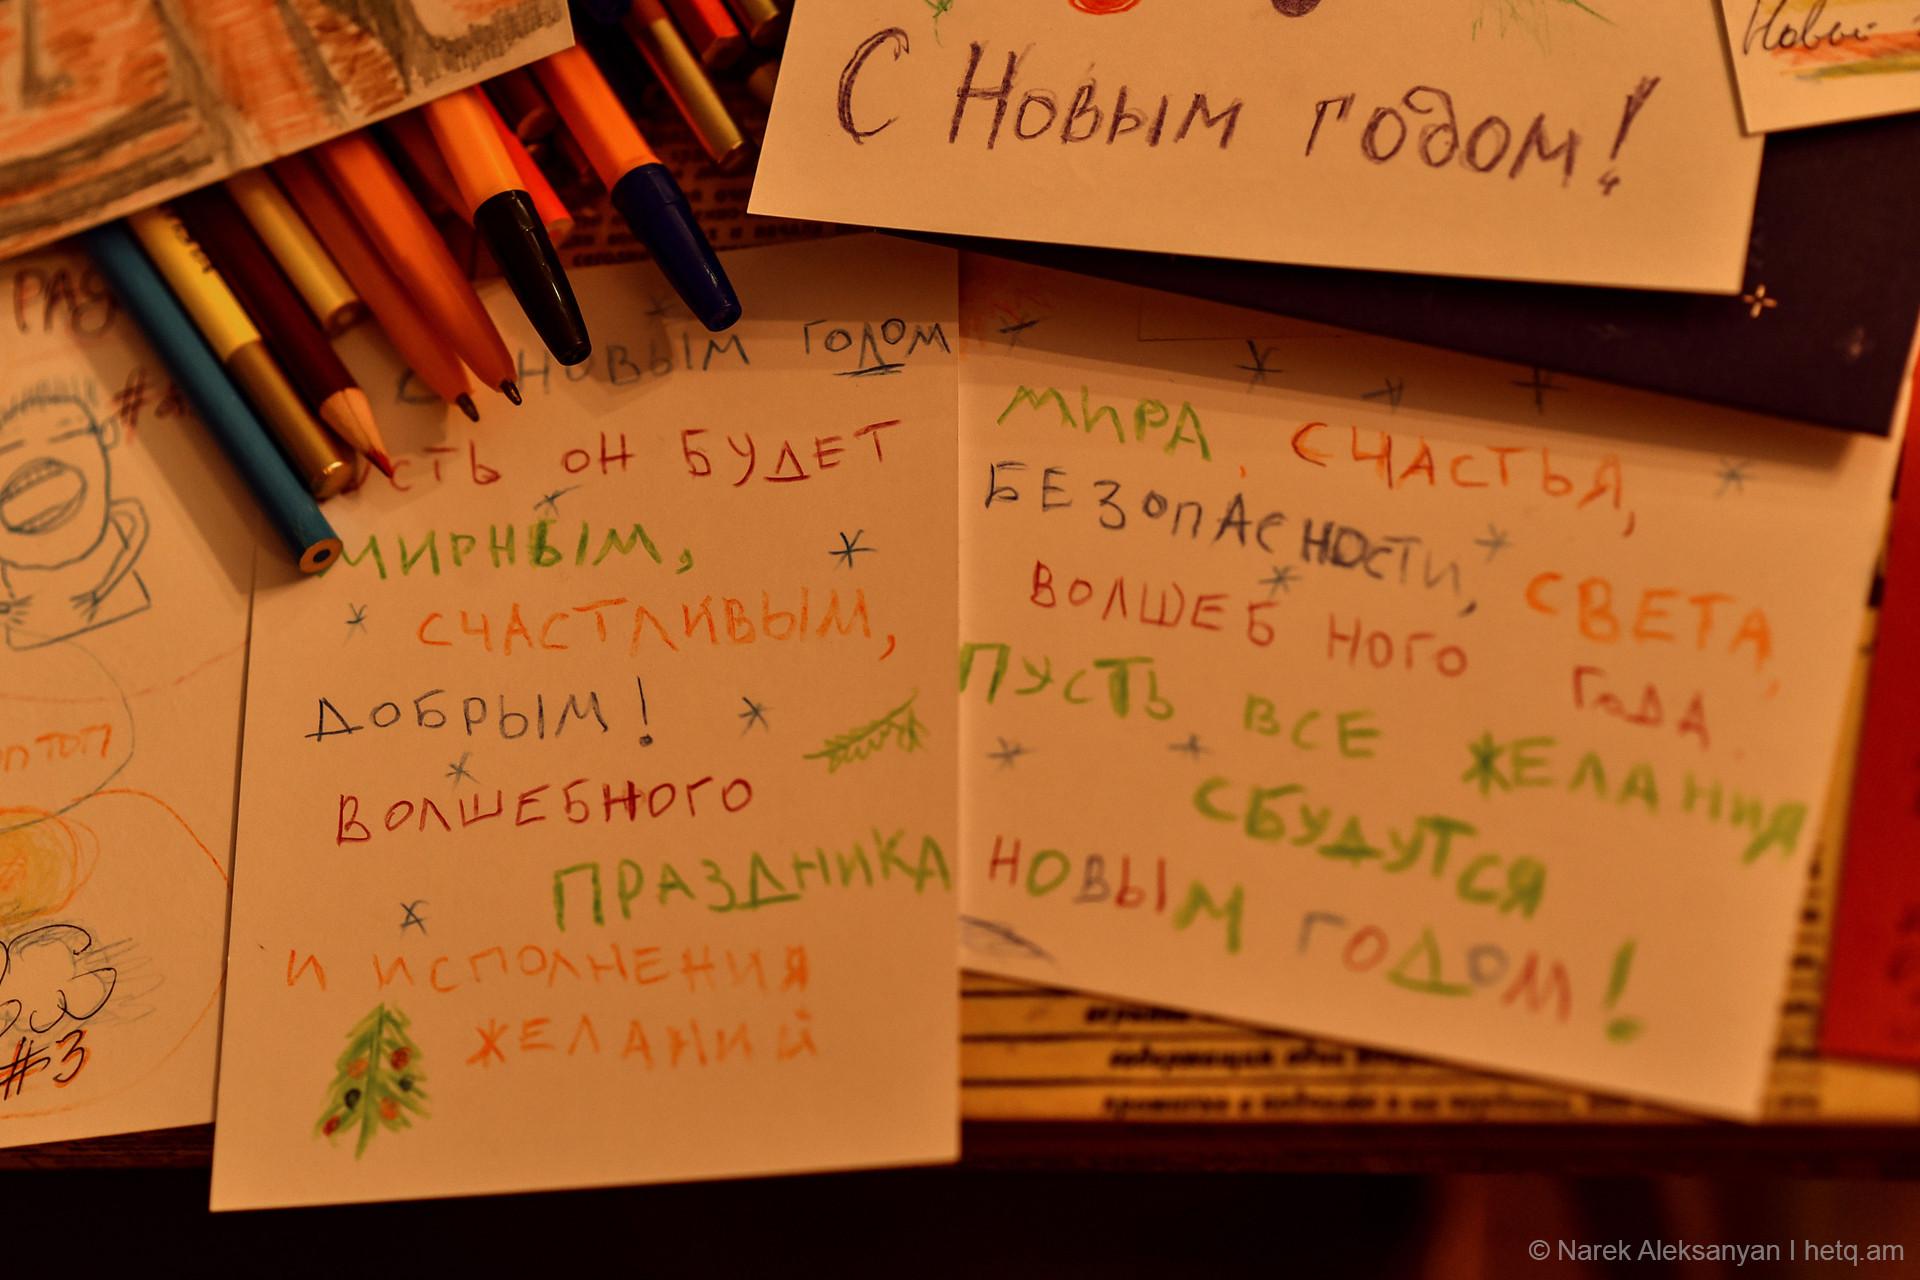 С Новым годом!
Новый
С НОВЫМ ГОДОМ
ОН БУДЕТ
МИРНЫМ,
СЧАСТЛИВЫМ,
ДОБРЫМ!
ВОЛШЕБНОГО
ПРАЗДНИКА
И ИСПОЛНЕНИЯ
ЖЕЛАНИЙ
МИРА, СЧАСТЬЯ,
БЕЗОПАСНОСТИ, СВЕТА,
ВОЛШЕБНОГО ГОДА.
ПУСТЬ ВСЕ ЖЕЛАНИЯ
СБУДУТСЯ
НОВЫМ ГОДОМ!
#3
© Narek Aleksanyan | hetq.am